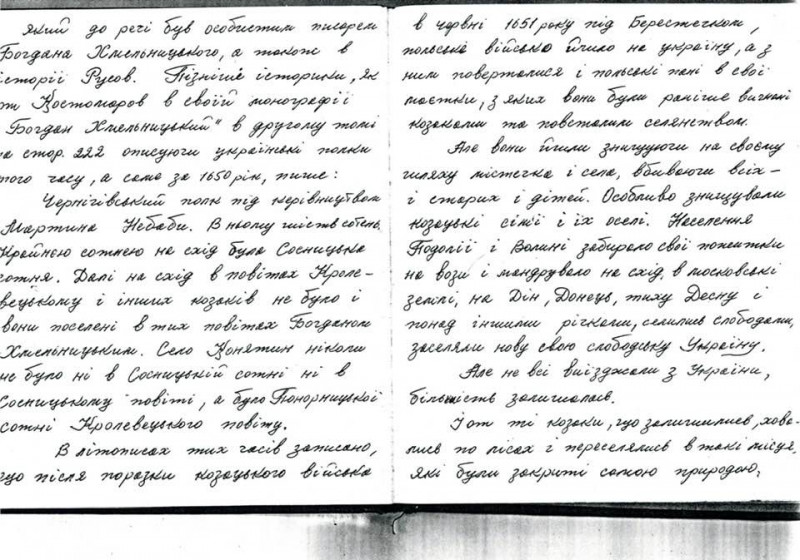 Який до речі був особистим писарем
Богдана Хмельницького, а також в
історії Русов. Пізніше історики, як
от Костомаров в своїй монографії
Богдан Хмельницький" в другому томі
на стор. 222 описуючи українські полки
того часу, а саме за 1650 рік, пише:
Чернігівський полк під керівництвом
Мартина Небаби. В ньому шість сотень.
Крайнєю сотнею на схід була Сосницька
сотня. Далі на схід в повітах Кроле-
вецькому і інших козаків не було і
вони поселені в тих повітах Богданом
Хмельницьким. Село Конятин ніколи
не було ні в Сосницькій сотні ні в
Сосницькому повіті, а було Понорницької
сотні Кролевецького повіту.
В літописах тих часів записано,
що після поразки козацького війська
в червні 1651 року під Берестечком,
польське військо йшло на україну, а з
ним поверталися і польські пани в свої
маєтки, з яких вони були раніше вигнані
козаками та повсталим селянством.
Але вони йшли знищуючи на своєму
шляху містечка і села, вбиваючи всіх-
і старих і дітей. Особливо знищували
козацькі сім'ї і їх оселі. Населення
Подолії і Волині забирало свої пожитки
на вози і мандрувало на схід, в московські
землі, на Дін, Донець, тиху Десну і
понад іншими річками, селились слободами,
заселяли нову свою слободську Україну.
Але не всі виїзджали з України,
більшість залишалась.
І от ті козаки, що залишились, хова-
лись по лісах і переселялись в такі місця,
які були закриті самою природою,